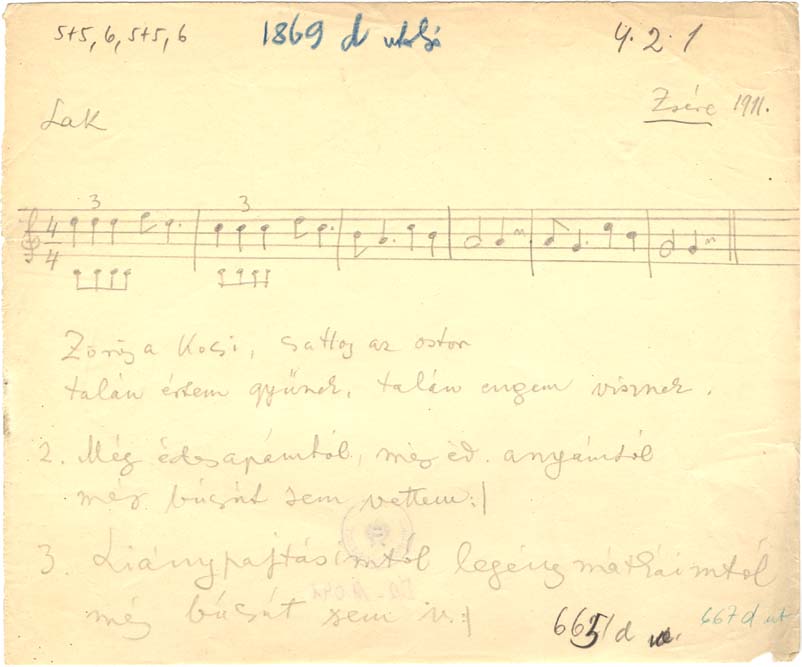 5+5, 6, 5+5, 6 1869 d utolsó 4. 2. 1
Zsére 1911.
Lak
3 3
4/4
Zörög a kocsi, sattog az ostor
talán értem gyünek, talán engem visznek.
2. Még édesapámtól, még éd. anyámtól
még búcsút sem vettem :|
3. Liánypajtásimtól legény mátkáimtól
még búcsút sem v. :|
665/d 667 d ut